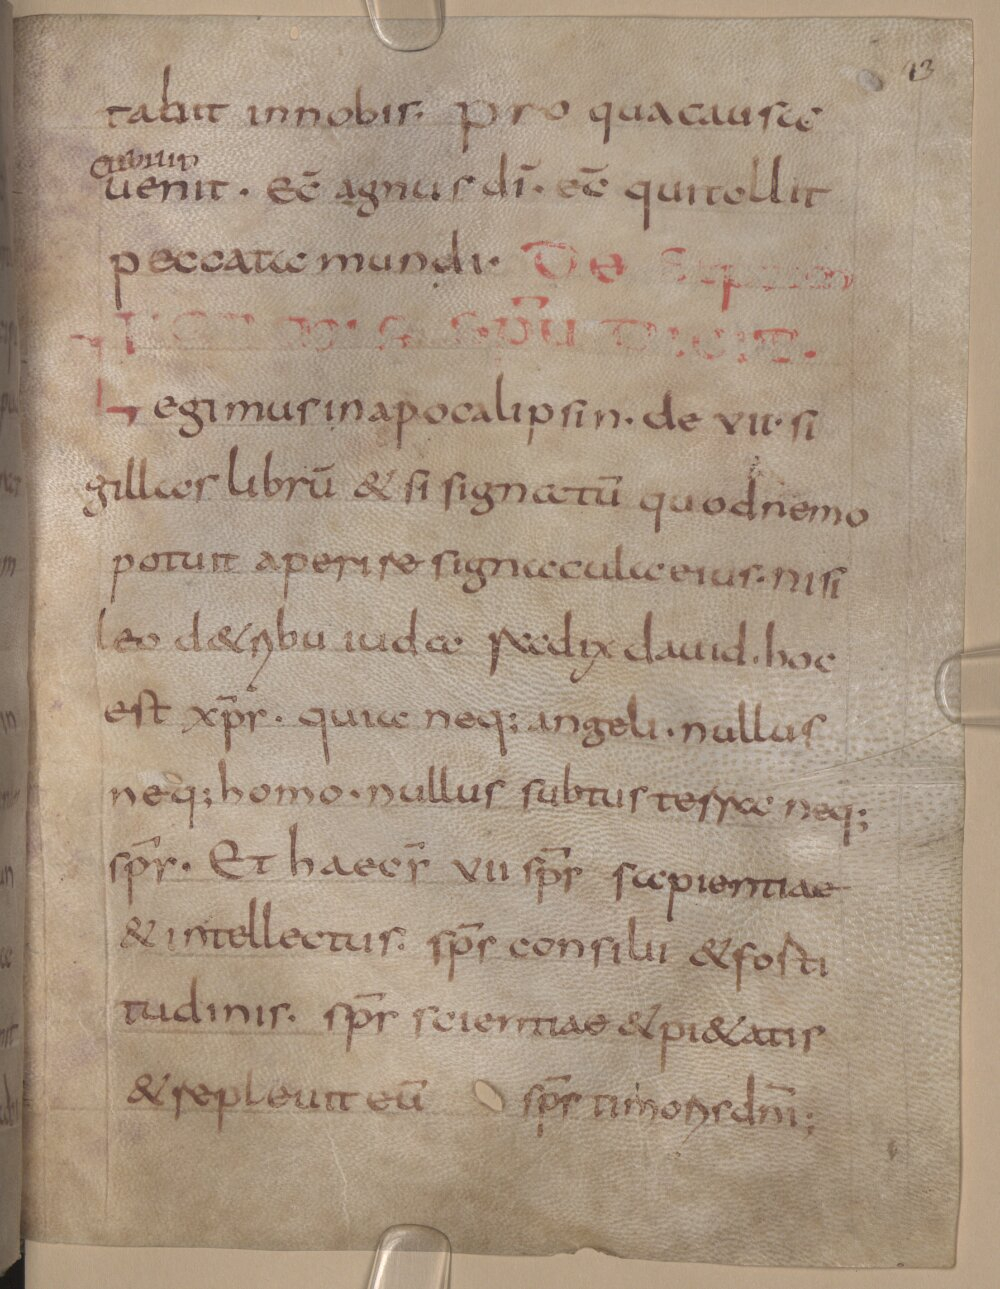 13
tabit in nobis. Pro qua causa
venit. ecē agnus dī. ecē qui tollit
peccata mundi. De Septem
sp̄u dicit.
Legimus in apocalipsin. de vii. si
gillas librū & si signatū quod nemo
potuit aperire signacula eius. nisi
leo d& rybu iuda radix david. hoc
est xp̄s. quia neq; angeli. nullus
neq; homo. nullus subtus terra neq;
sp̄s. Et haec s̄ vii sp̄s sapientiae
& intellectus. sp̄s consilii & forti
tudinis. sp̄s scientiae & pi&atis
& repleuit eū sp̄s timoris dn̄i;